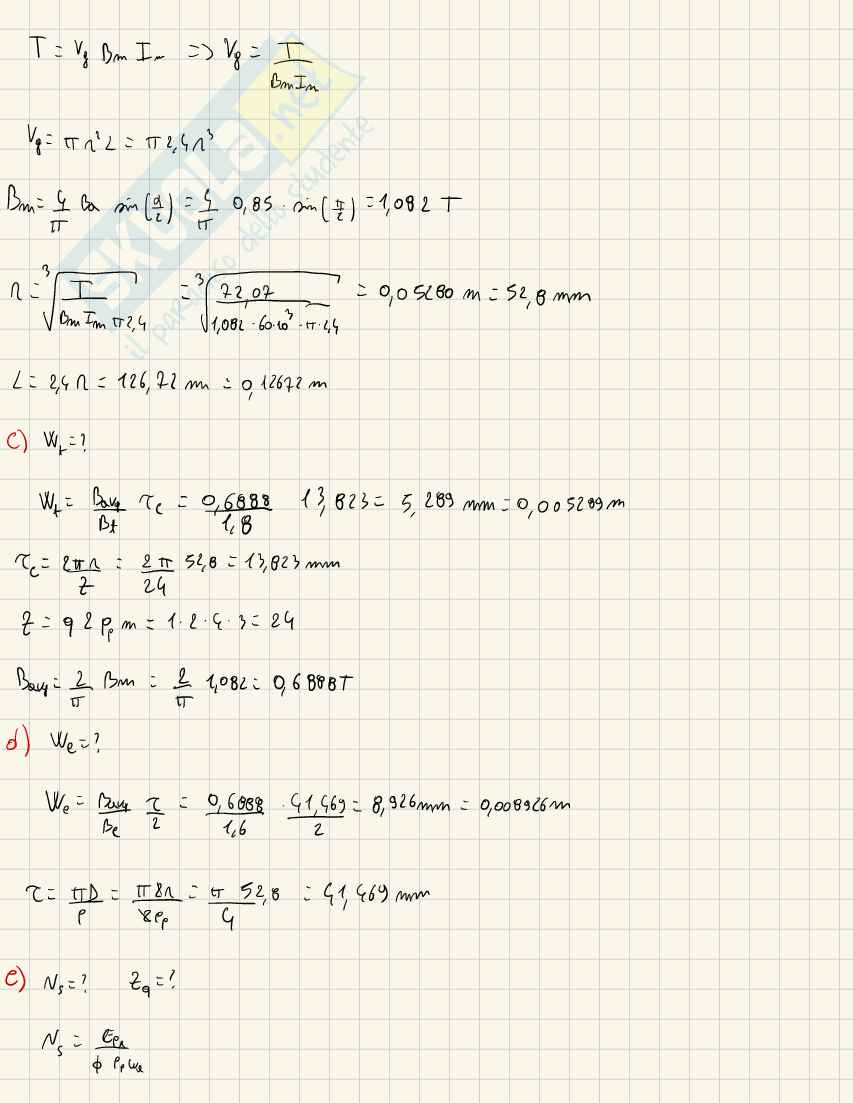 T = Vg Bm Im => Vg = T / (Bm Im)
Vg = π r² L = π 2,4 r³
Bm = 4/π Ba sin(α/2) = 4/π 0,85 · sin(π/2) = 1,082 T
r = ∛(T / (Bm Im π 2,4)) = ∛(72,07 / (1,082 · 60·10³ · π · 2,4)) = 0,05280 m = 52,8 mm
L = 2,4 r = 126,72 mm = 0,12672 m
c) Wt = ?
Wt = Bavg/Bt τc = 0,6888/1,8 13,823 = 5,289 mm = 0,005289 m
τc = 2πr/Z = 2π/24 52,8 = 13,823 mm
Z = q 2 Pp m = 1 · 2 · 4 · 3 = 24
Bavg = 2/π Bm = 2/π 1,082 = 0,6888 T
d) We = ?
We = Bavg/Be τ/2 = 0,6888/1,6 · 41,469/2 = 8,926 mm = 0,008926 m
τ = πD/P = π2r/2Pp = π 52,8/4 = 41,469 mm
e) Ns = ? Zq = ?
Ns = Epk / (ϕ Pp ωe)
SKUOLA.net
il paradiso dello studente